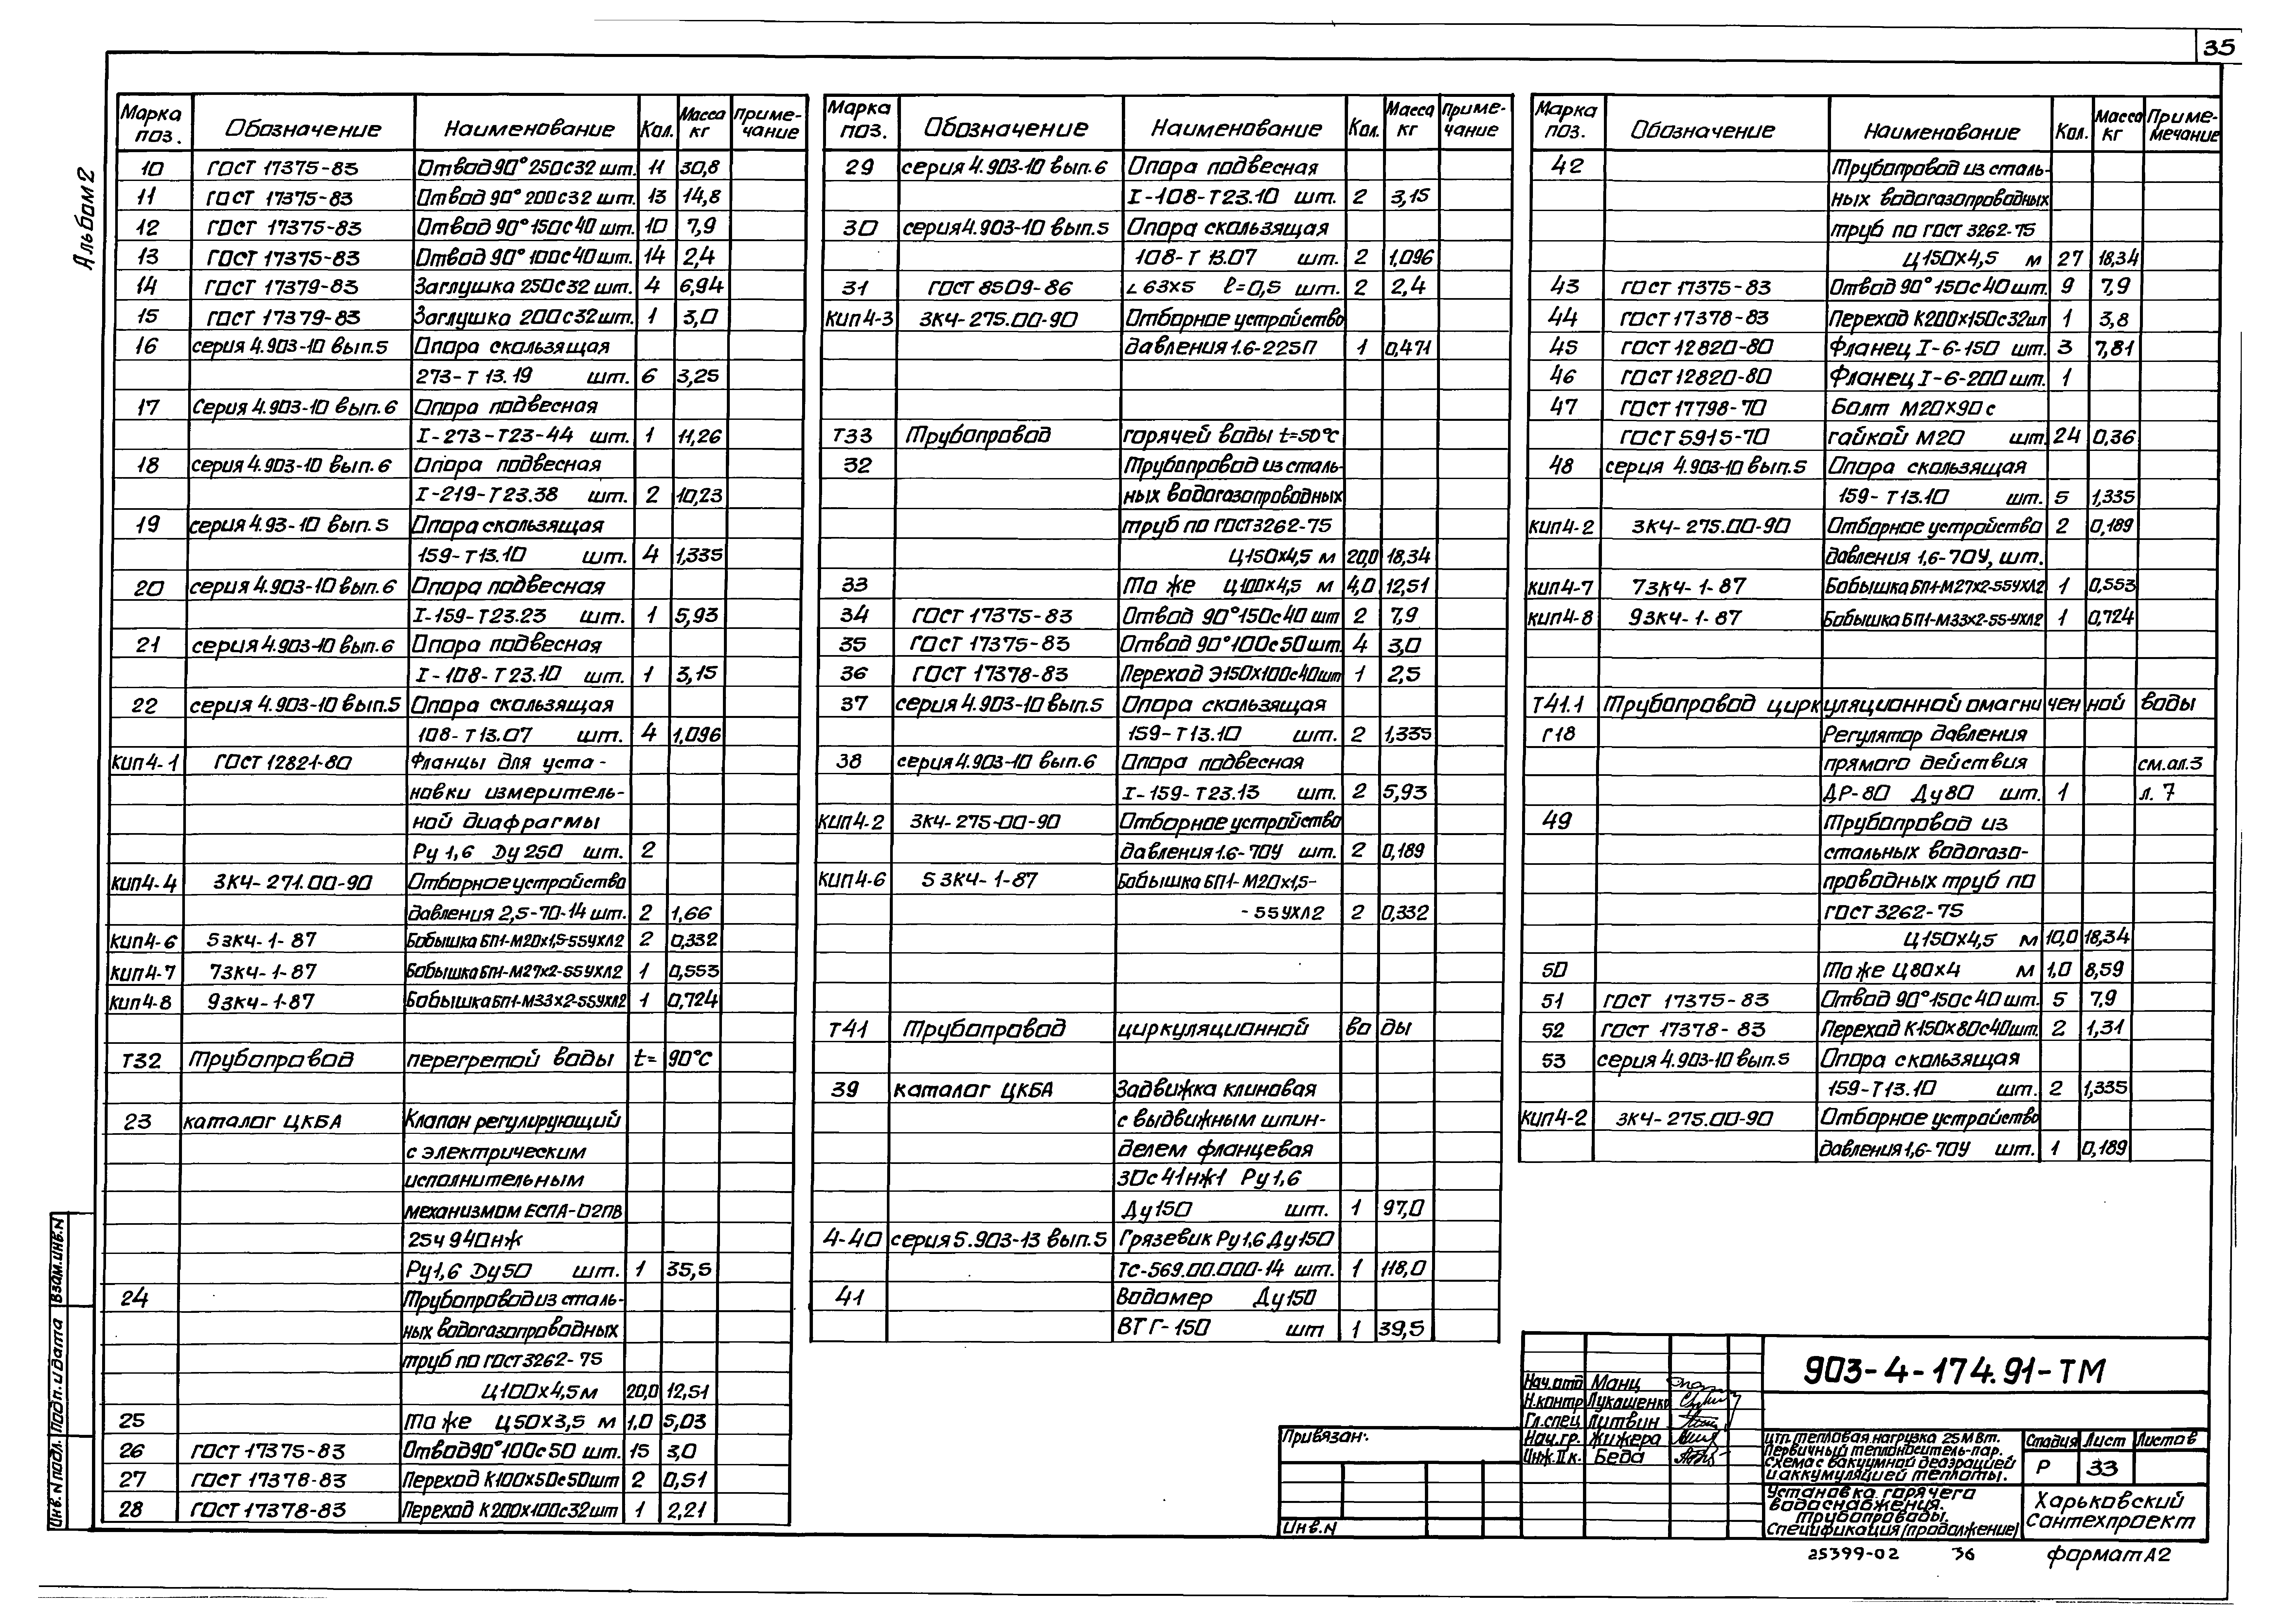 35
Альбом 2
Марка поз. Обозначение Наименование Кол. Масса кг Приме-чание
10 ГОСТ 17375-83 Отвод 90° 250с32 шт. 11 30,8
11 ГОСТ 17375-83 Отвод 90° 200с32 шт. 13 14,8
12 ГОСТ 17375-83 Отвод 90° 150с40 шт. 10 7,9
13 ГОСТ 17375-83 Отвод 90° 100с40 шт. 14 2,4
14 ГОСТ 17379-83 Заглушка 250с32 шт. 4 6,94
15 ГОСТ 17379-83 Заглушка 200с32 шт. 1 3,0
16 серия 4.903-10 вып.5 Опора скользящая
273-Т 13.19 шт. 6 3,25
17 Серия 4.903-10 вып.6 Опора подвесная
I-273-Т23-44 шт. 1 11,26
18 серия 4.903-10 вып.6 Опора подвесная
I-219-Т23.38 шт. 2 10,23
19 серия 4.93-10 вып.5 Опора скользящая
159-Т13.10 шт. 4 1,335
20 серия 4.903-10 вып.6 Опора подвесная
I-159-Т23.23 шт. 1 5,93
21 серия 4.903-10 вып.6 Опора подвесная
I-108-Т23.10 шт. 1 3,15
22 серия 4.903-10 вып.5 Опора скользящая
108-Т13.07 шт. 4 1,096
КИП4-1 ГОСТ 12821-80 Фланцы для уста-
новки измеритель-
ной диафрагмы
Ру 1,6 Dу 250 шт. 2
КИП4-4 3КЧ-271.00-90 Отборное устройство
давления 2,5-70-14 шт. 2 1,66
КИП4-6 53КЧ-1-87 Бобышка БП1-М20х1,5-55УХЛ2 2 0,332
КИП4-7 73КЧ-1-87 Бобышка БП1-М27х2-55УХЛ2 1 0,553
КИП4-8 93КЧ-1-87 Бобышка БП1-М33х2-55УХЛ2 1 0,724
Т32 Трубопровод перегретой воды t= 90°С
23 каталог ЦКБА Клапан регулирующий
с электрическим
исполнительным
механизмом ЕСПА-02ПВ
25ч 940нж
Ру1,6 Dу50 шт. 1 35,5
24 Трубопровод из сталь-
ных водогазопроводных
труб по ГОСТ 3262-75
Ц100х4,5 м 20,0 12,51
25 То же Ц50х3,5 м 1,0 5,03
26 ГОСТ 17375-83 Отвод 90° 100с50 шт. 15 3,0
27 ГОСТ 17378-83 Переход К100х50с50шт 2 0,51
28 ГОСТ 17378-83 Переход К200х100с32шт 1 2,21
Марка поз. Обозначение Наименование Кол. Масса кг Приме-чание
29 серия 4.903-10 вып.6 Опора подвесная
I-108-Т23.10 шт. 2 3,15
30 серия 4.903-10 вып.5 Опора скользящая
108-Т 13.07 шт. 2 1,096
31 ГОСТ 8509-86 ∟63х5 ℓ=0,5 шт. 2 2,4
КИП4-3 3КЧ-275.00-90 Отборное устройство
давления 1.6-225П 1 0,471
Т33 Трубопровод горячей воды t=50°С
32 Трубопровод из сталь-
ных водогазопроводных
труб по ГОСТ 3262-75
Ц150х4,5 м 20,0 18,34
33 То же Ц100х4,5 м 4,0 12,51
34 ГОСТ 17375-83 Отвод 90° 150с40 шт 2 7,9
35 ГОСТ 17375-83 Отвод 90° 100с50 шт. 4 3,0
36 ГОСТ 17378-83 Переход Э150х100с40шт 1 2,5
37 серия 4.903-10 вып.5 Опора скользящая
159-Т13.10 шт. 2 1,335
38 серия 4.903-10 вып.6 Опора подвесная
I-159-Т23.13 шт. 2 5,93
КИП4-2 3КЧ-275-00-90 Отборное устройство
давления 1.6-70У шт. 2 0,189
КИП4-6 53КЧ-1-87 Бобышка БП1-М20х1,5-
-55УХЛ2 2 0,332
Т41 Трубопровод циркуляционной воды
39 каталог ЦКБА Задвижка клиновая
с выдвижным шпин-
делем фланцевая
30с41нж1 Ру 1,6
Ду150 шт. 1 97,0
4-40 серия 5.903-13 вып.5 Грязевик Ру1,6 Ду150
ТС-569.00.000-14 шт. 1 118,0
41 Водомер Ду150
ВТГ-150 шт 1 39,5
Марка поз. Обозначение Наименование Кол. Масса кг Приме-мечание
42 Трубопровод из сталь-
ных водогазопроводных
труб по ГОСТ 3262-75
Ц150х4,5 м 27 18,34
43 ГОСТ 17375-83 Отвод 90° 150с40 шт. 9 7,9
44 ГОСТ 17378-83 Переход К200х150с32шт 1 3,8
45 ГОСТ 12820-80 Фланец I-6-150 шт. 3 7,81
46 ГОСТ 12820-80 Фланец I-6-200 шт. 1
47 ГОСТ 17798-70 Болт М20х90 с
ГОСТ 5915-70 гайкой М20 шт. 24 0,36
48 серия 4.903-10 вып.5 Опора скользящая
159-Т13.10 шт. 5 1,335
КИП4-2 3КЧ-275.00-90 Отборное устройство 2 0,189
давления 1,6-70У, шт.
КИП4-7 73КЧ-1-87 Бобышка БП1-М27х2-55УХЛ2 1 0,553
КИП4-8 93КЧ-1-87 Бобышка БП1-М33х2-55-УХЛ2 1 0,724
Т41.1 Трубопровод циркуляционной омагниченной воды
Г18 Регулятор давления
прямого действия см.ал.3
ДР-80 Ду80 шт. 1 л. 7
49 Трубопровод из
стальных водогазо-
проводных труб по
ГОСТ 3262-75
Ц150х4,5 м 10,0 18,34
50 То же Ц80х4 м 1,0 8,59
51 ГОСТ 17375-83 Отвод 90° 150с40 шт. 5 7,9
52 ГОСТ 17378-83 Переход К150х80с40шт. 2 1,31
53 серия 4.903-10 вып.5 Опора скользящая
159-Т13.10 шт. 2 1,335
КИП4-2 3КЧ-275.00-90 Отборное устройство
давления 1,6-70У шт. 1 0,189
Взам.инв.N
Подп. и дата
Инв.N подл.
Привязан:
Инв.N
Нач.отд Манц
Н.контр Лукашенко
Гл.спец Литвин
Нач.гр. Жижера
Инж.II к. Беда
903-4-174.91-ТМ
ЦТП. тепловая нагрузка 25МВт.
Первичный теплоноситель-пар.
Схема с вакуумной деаэрацией
и аккумуляцией теплоты.
Стадия Лист Листов
Р 33
Установка горячего
водоснабжения.
Трубопроводы.
Спецификация (продолжение)
Харьковский
Сантехпроект
25399-02 36 формат А2